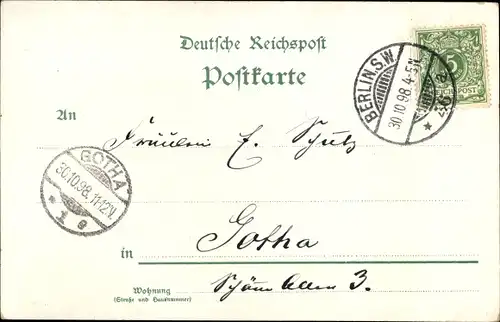 Deutsche Reichspost
Postkarte
BERLIN, S.W.
30.10.98. 4-5N.
5
REICHSPOST
An Fräulein E. Schutz
GOTHA
30.10.98. 11-12V.
* 1 g
in Gotha
Wohnung
(Straße und Hausnummer)
Allee 3.